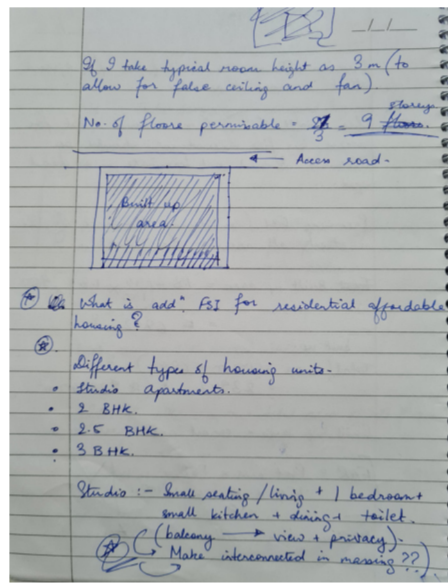 If I take typical room height as 3m (to
allow for false ceiling and fan).
storeys
No. of floors permissable = 27/3 = 9 floors.
Access road.
Built up
area.
What is addⁿ FSI for residential affordable
housing?
Different types of housing units.
• Studio apartments.
• 2 BHK.
• 2.5 BHK.
• 3 BHK.
Studio :- Small seating/living + 1 bedroom +
small kitchen + dining + toilet.
(balcony → view + privacy).
Make interconnected in massing??)